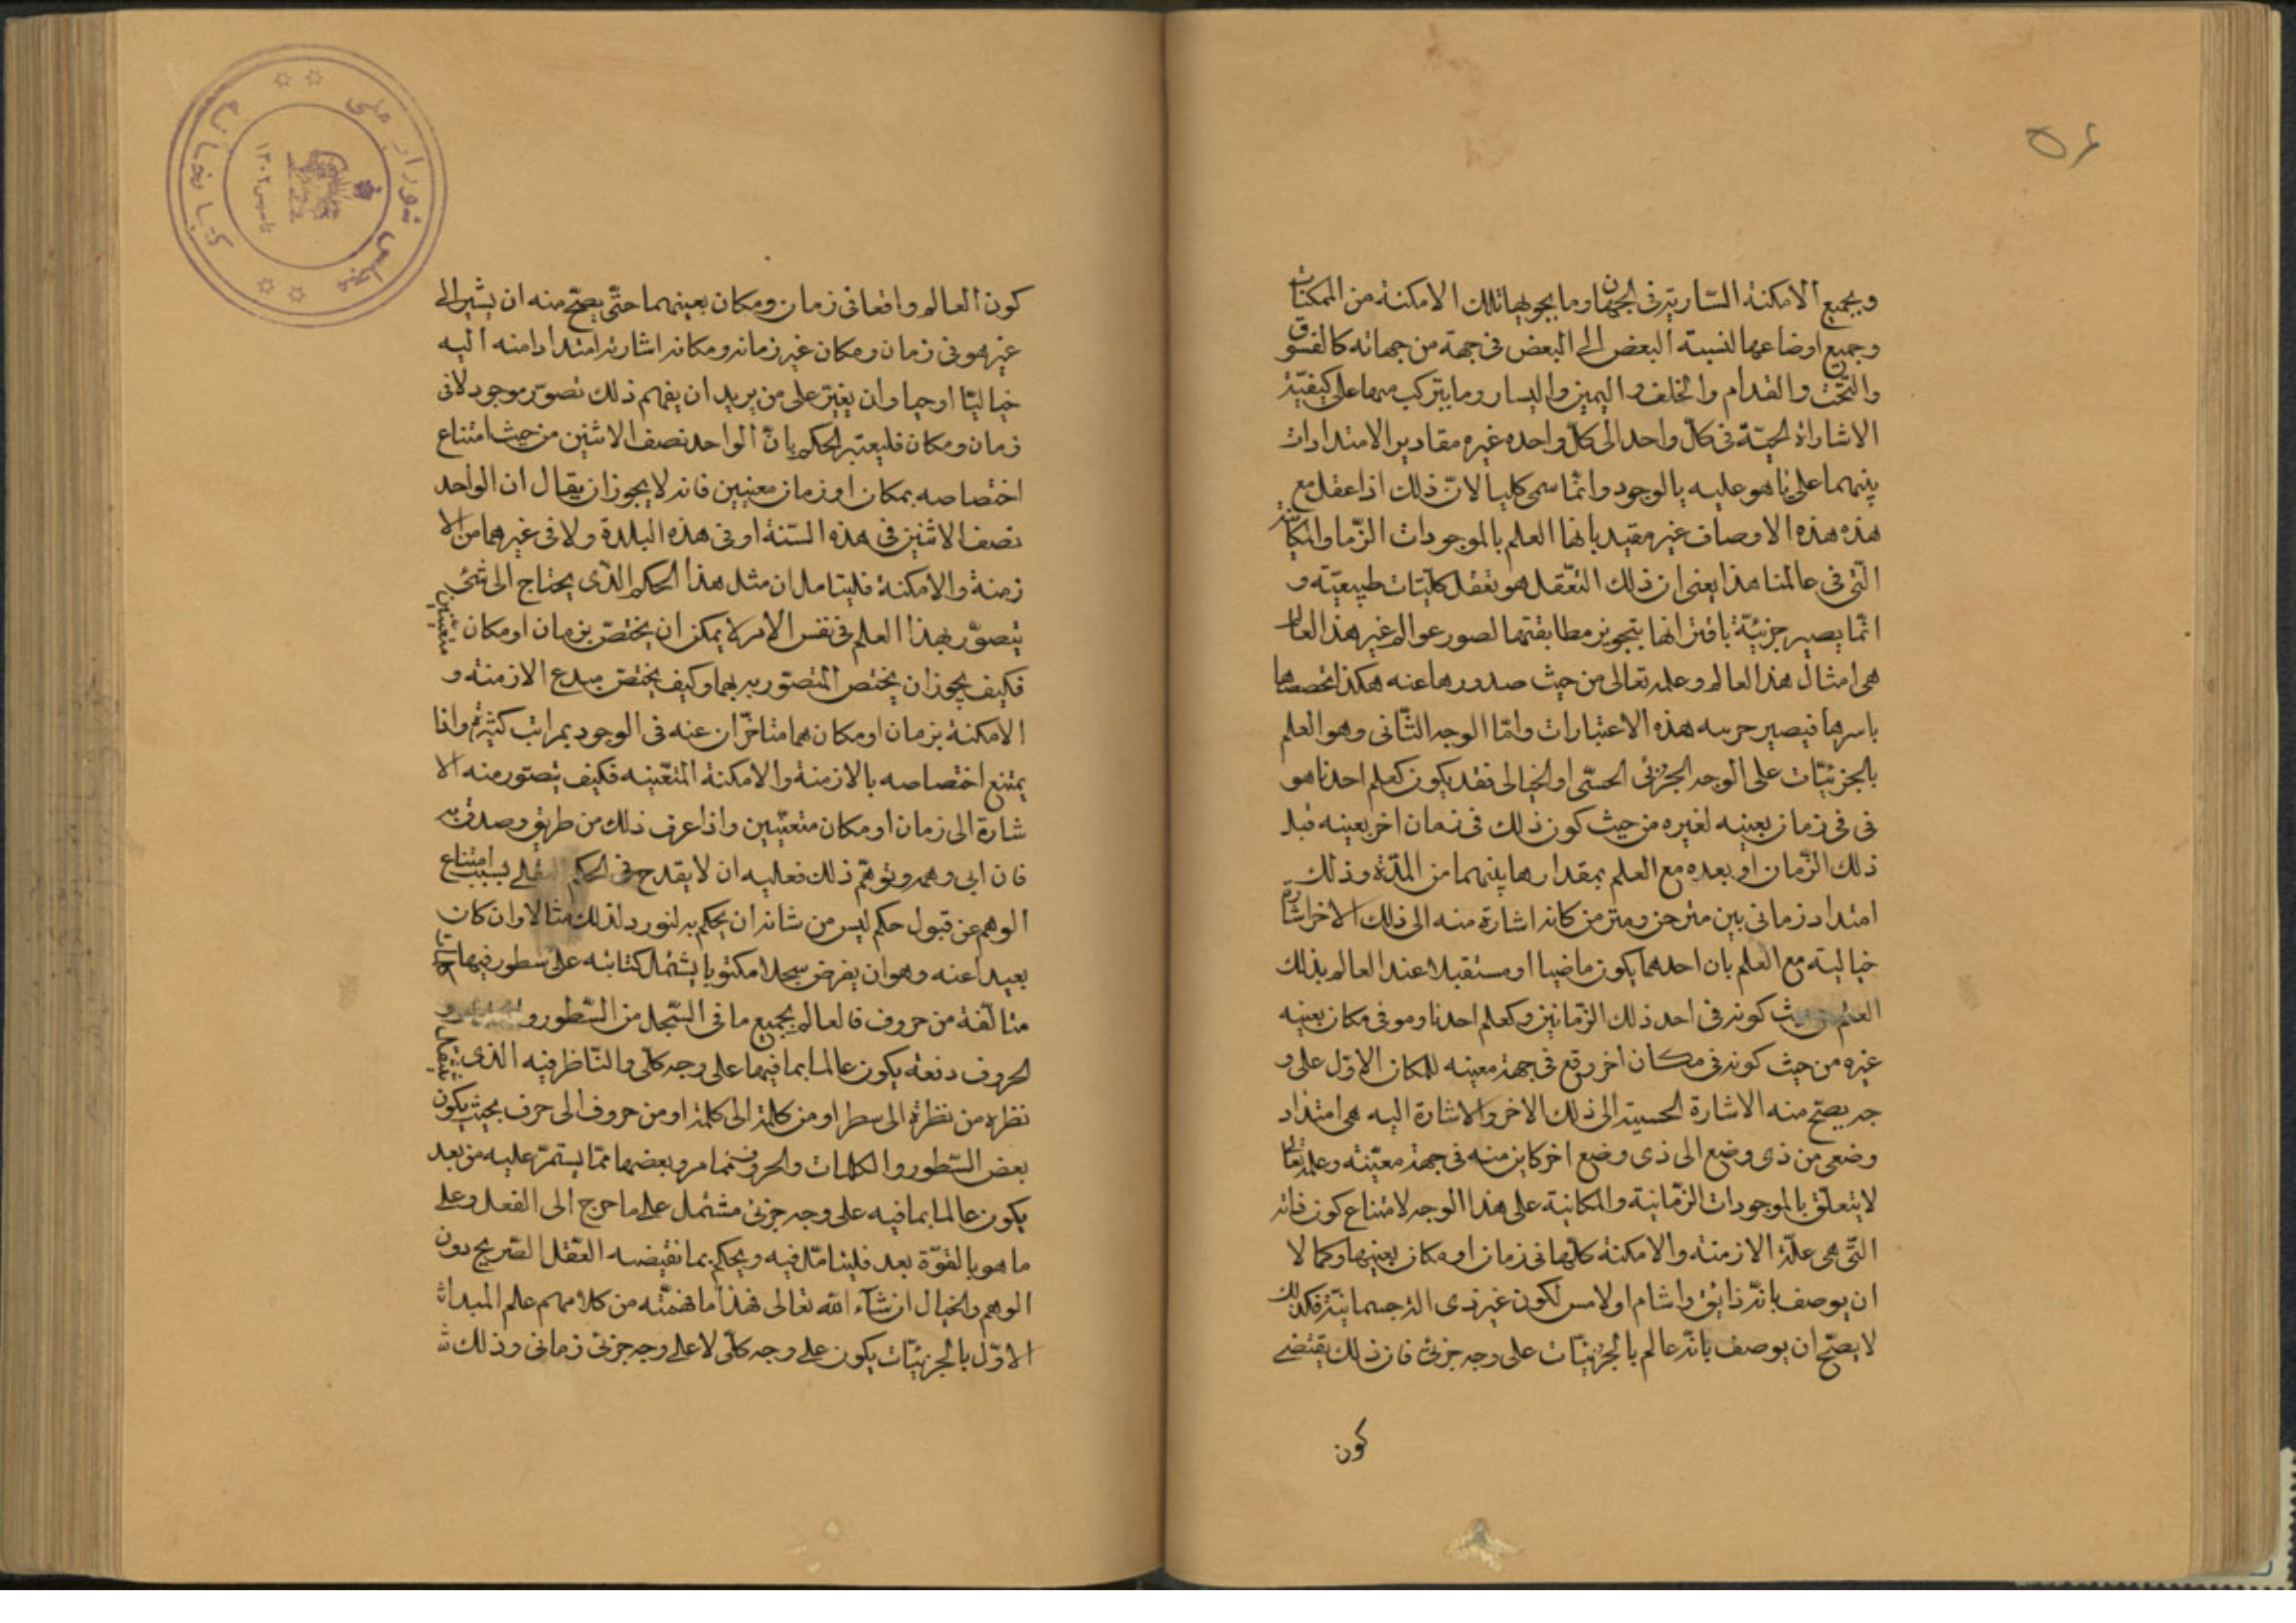 ٥۶
وبجميع الامكنة السارية فى الجهات وما يحويها تلك الامكنة من الممكنات
وجميع اوضاعها لنسبة البعض الى البعض فى جهة من جهاته كالفوق
والتحت والقدام والخلف واليمين واليسار وما يتركب منها على كيفيّة
الاشاراة الحسّيّة فى كلّ واحد الى كلّ واحده غيره مقادير الامتدادات
بينهما على ما هو عليه بالوجود وانّما سمى كليا لانّ ذلك اذا عقل مع
هذه هذه الاوصاف غير مقيد بانها العلم بالموجودات الزّما والمكانيّة
الّتى فى عالمنا هذا يعنى ان ذلك التعّقل هو تعّقل كليّات طبيعيّة و
انّما يصير جزئيّة باقترانها بتجويز مطابقتها لصور عوالم غير هذ العالم
هى امثال هذا العالم وعلمه تعالى من حيث صدورها عنه هكذا تخصصها
باسرها فيصير هذه الاعتبارات وامّا الوجه الثّانى وهو العلم
بالجزئيّات على الوجه الجزئى الحسّى او الخيالى فقد يكون كعلم احدنا هو
فى فى زمان بعينه لغيره من حيث كون ذلك فى زمان اخر بعينه قبل
ذلك الزّمان او بعده مع العلم بمقدار ها بينهما من المدّة وذلك
امتداد زمانى بين كانه اشارة منه الى ذلك الاخر اشارة
خيالية مع العلم بان احدهما يكون ماضيا او مستقبلا عند العالم بذلك
العلم من حيث كونه فى احد ذلك الزّمانين وكعلم احدنا وهو فى مكان بعينه
غيره من حيث كونه فى مكان اخر وقع فى جهة معينه للمكان الاوّل على و
جه يصحّ منه الاشارة الحسية الى ذلك الاخر والاشارة اليه هى امتداد
وضعى من ذى وضع الى ذى وضع اخر كاين منه فى جهة معيّنة وعلمه تعالى
لا يتعلّق بالموجودات الزّمانية والمكانية على هذا الوجه لامتناع كون ذاته
التّى هى علّة الازمنة والامكنة كلّها فى زمان او مكان بعينها وكما لا
ان يوصف بانّه ذايق واشام او لامس لكون غير ذى الة جسمانيّة فكذلك
لا يصحّ ان يوصف بانّه عالم بالجزئيّات على وجه جزئى فان ذلك يقتضى
كون
كون العالم واقعا فى زمان ومكان بعينهما حتّى يصحّ منه ان يشير الى
غيره هو فى زمان ومكان غير زمانه ومكانه اشارة امتدادا منه اليه
خياليّا او حيا وان على من يريد ان يفهم ذلك تصوّر موجود لا فى
زمان ومكان فليعتبر الحكم بانّ الواحد نصف الاثنين من حيث امتناع
اختصاصه بمكان او زمان معينين فانه لا يجوز ان يقال ان الواحد
نصف الاثنين فى هذه السّنة او فى هذه البلدة ولا فى غيرهما من الا
زمنة والامكنة فليتامل ان مثل هذا الحكم الذّى يحتاج الى شئ
يتصوّر بهذا العلم فى نفس الامر لا يمكن ان يختصّ بزمان او مكان متعينين
فكيف يجوز ان يختص المتصور به بهما وكيف يختصّ مبدع الازمنة و
الامكنة بزمان او مكان هما متاخّران عنه فى الوجود بمراتب كثيرة واذا
يمتنع اختصاصه بالازمنة والامكنة المتعّينه فكيف يتصور منه الا
شارة الى زمان او مكان متعيّنين واذا عرف ذلك من طريق وصدق به
فان ابى وهمه وتوهّم ذلك فعليه ان لا يقدح فى الحكم بسبب امتناع
الوهم عن قبول حكم ليس من شانه ان يحكم به لنورد لذلك مثالا وان كان
بعيدا عنه وهو ان يفرض سجلا مكتوبا يشتمل كتابته على سطور فيها كلمات
متالّفة من حروف فالعالم بجميع ما فى السّجل من السّطور و و
الحروف دفعة يكون عالما بما فيها على وجه كلّى والنّاظر فيه الذى ينتقل
نظره من نظرة الى سطر او من كلمة الى كلمة او من حروف الى حرف بحيث يكون
بعض السّطور والكلمات والحروف مما مر وبعضها ممّا يستمرّ عليه من بعد
يكون عالما بما فيه على وجه جزئى مشتمل على ما خرج الى الفعل وعلى
ما هو بالقوّة بعد فليتامّل فيه ويحكم بما تقيضه العقل الصّريح دون
الوهم والخيال ان شآء الله تعالى فهذا ما فهمتّه من كلامهم علم المبدا
الاوّل بالجزئيّات يكون على وجه كلّى لا على وجه جزئى زمانى وذلك
كتابخانه
مجلس شورای ملی
تاسیس ۱۳۰۲